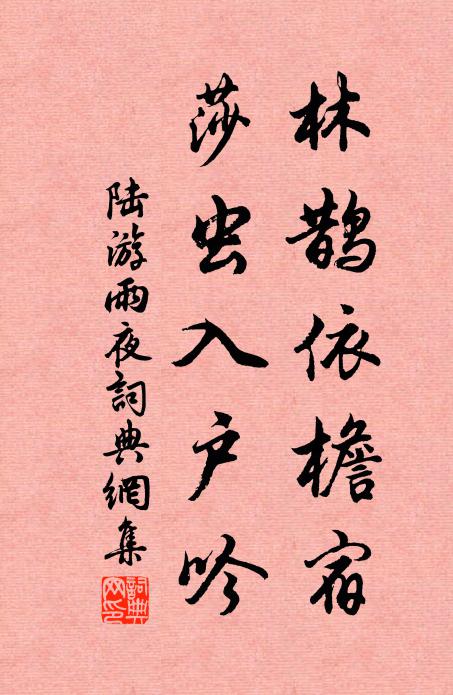 林鹊依檐宿
莎虫入户吟
陆游雨夜詞典網集
詞典
网印